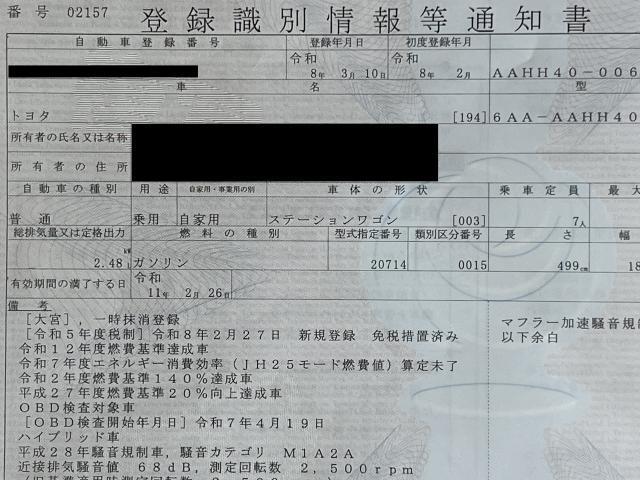 番号 02157 登録識別情報等通知書
自動車登録番号 登録年月日 初度登録年月
令和 8年 3月 10日 令和 8年 2月 AAHH40-006
車名 型
トヨタ [194] 6AA-AAHH40
所有者の氏名又は名称
所有者の住所
自動車の種別 用途 自家用・事業用の別 車体の形状 乗車定員 最大
普通 乗用 自家用 ステーションワゴン [003] 7人
総排気量又は定格出力 燃料の種別 型式指定番号 類別区分番号 長さ 幅
2.48 kW L ガソリン 20714 0015 499cm 18
有効期間の満了する日 令和 11年 2月 26日
備考
[大宮],一時抹消登録
[令和5年度税制]令和8年2月27日 新規登録 免税措置済み
令和12年度燃費基準達成車
令和7年度エネルギー消費効率(JH25モード燃費値)算定未了
令和2年度燃費基準140%達成車
平成27年度燃費基準20%向上達成車
OBD検査対象車
[OBD検査開始年月日]令和7年4月19日
ハイブリッド車
平成28年騒音規制車,騒音カテゴリ M1A2A
近接排気騒音値 68dB,測定回転数 2,500rpm
マフラー加速騒音規
以下余白